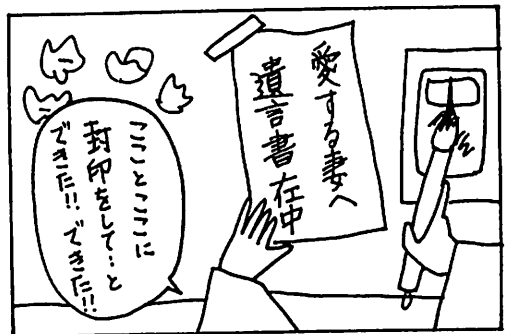 愛する妻へ
遺言書在中
ここととここに
封印をして…と
できた!!できた!!